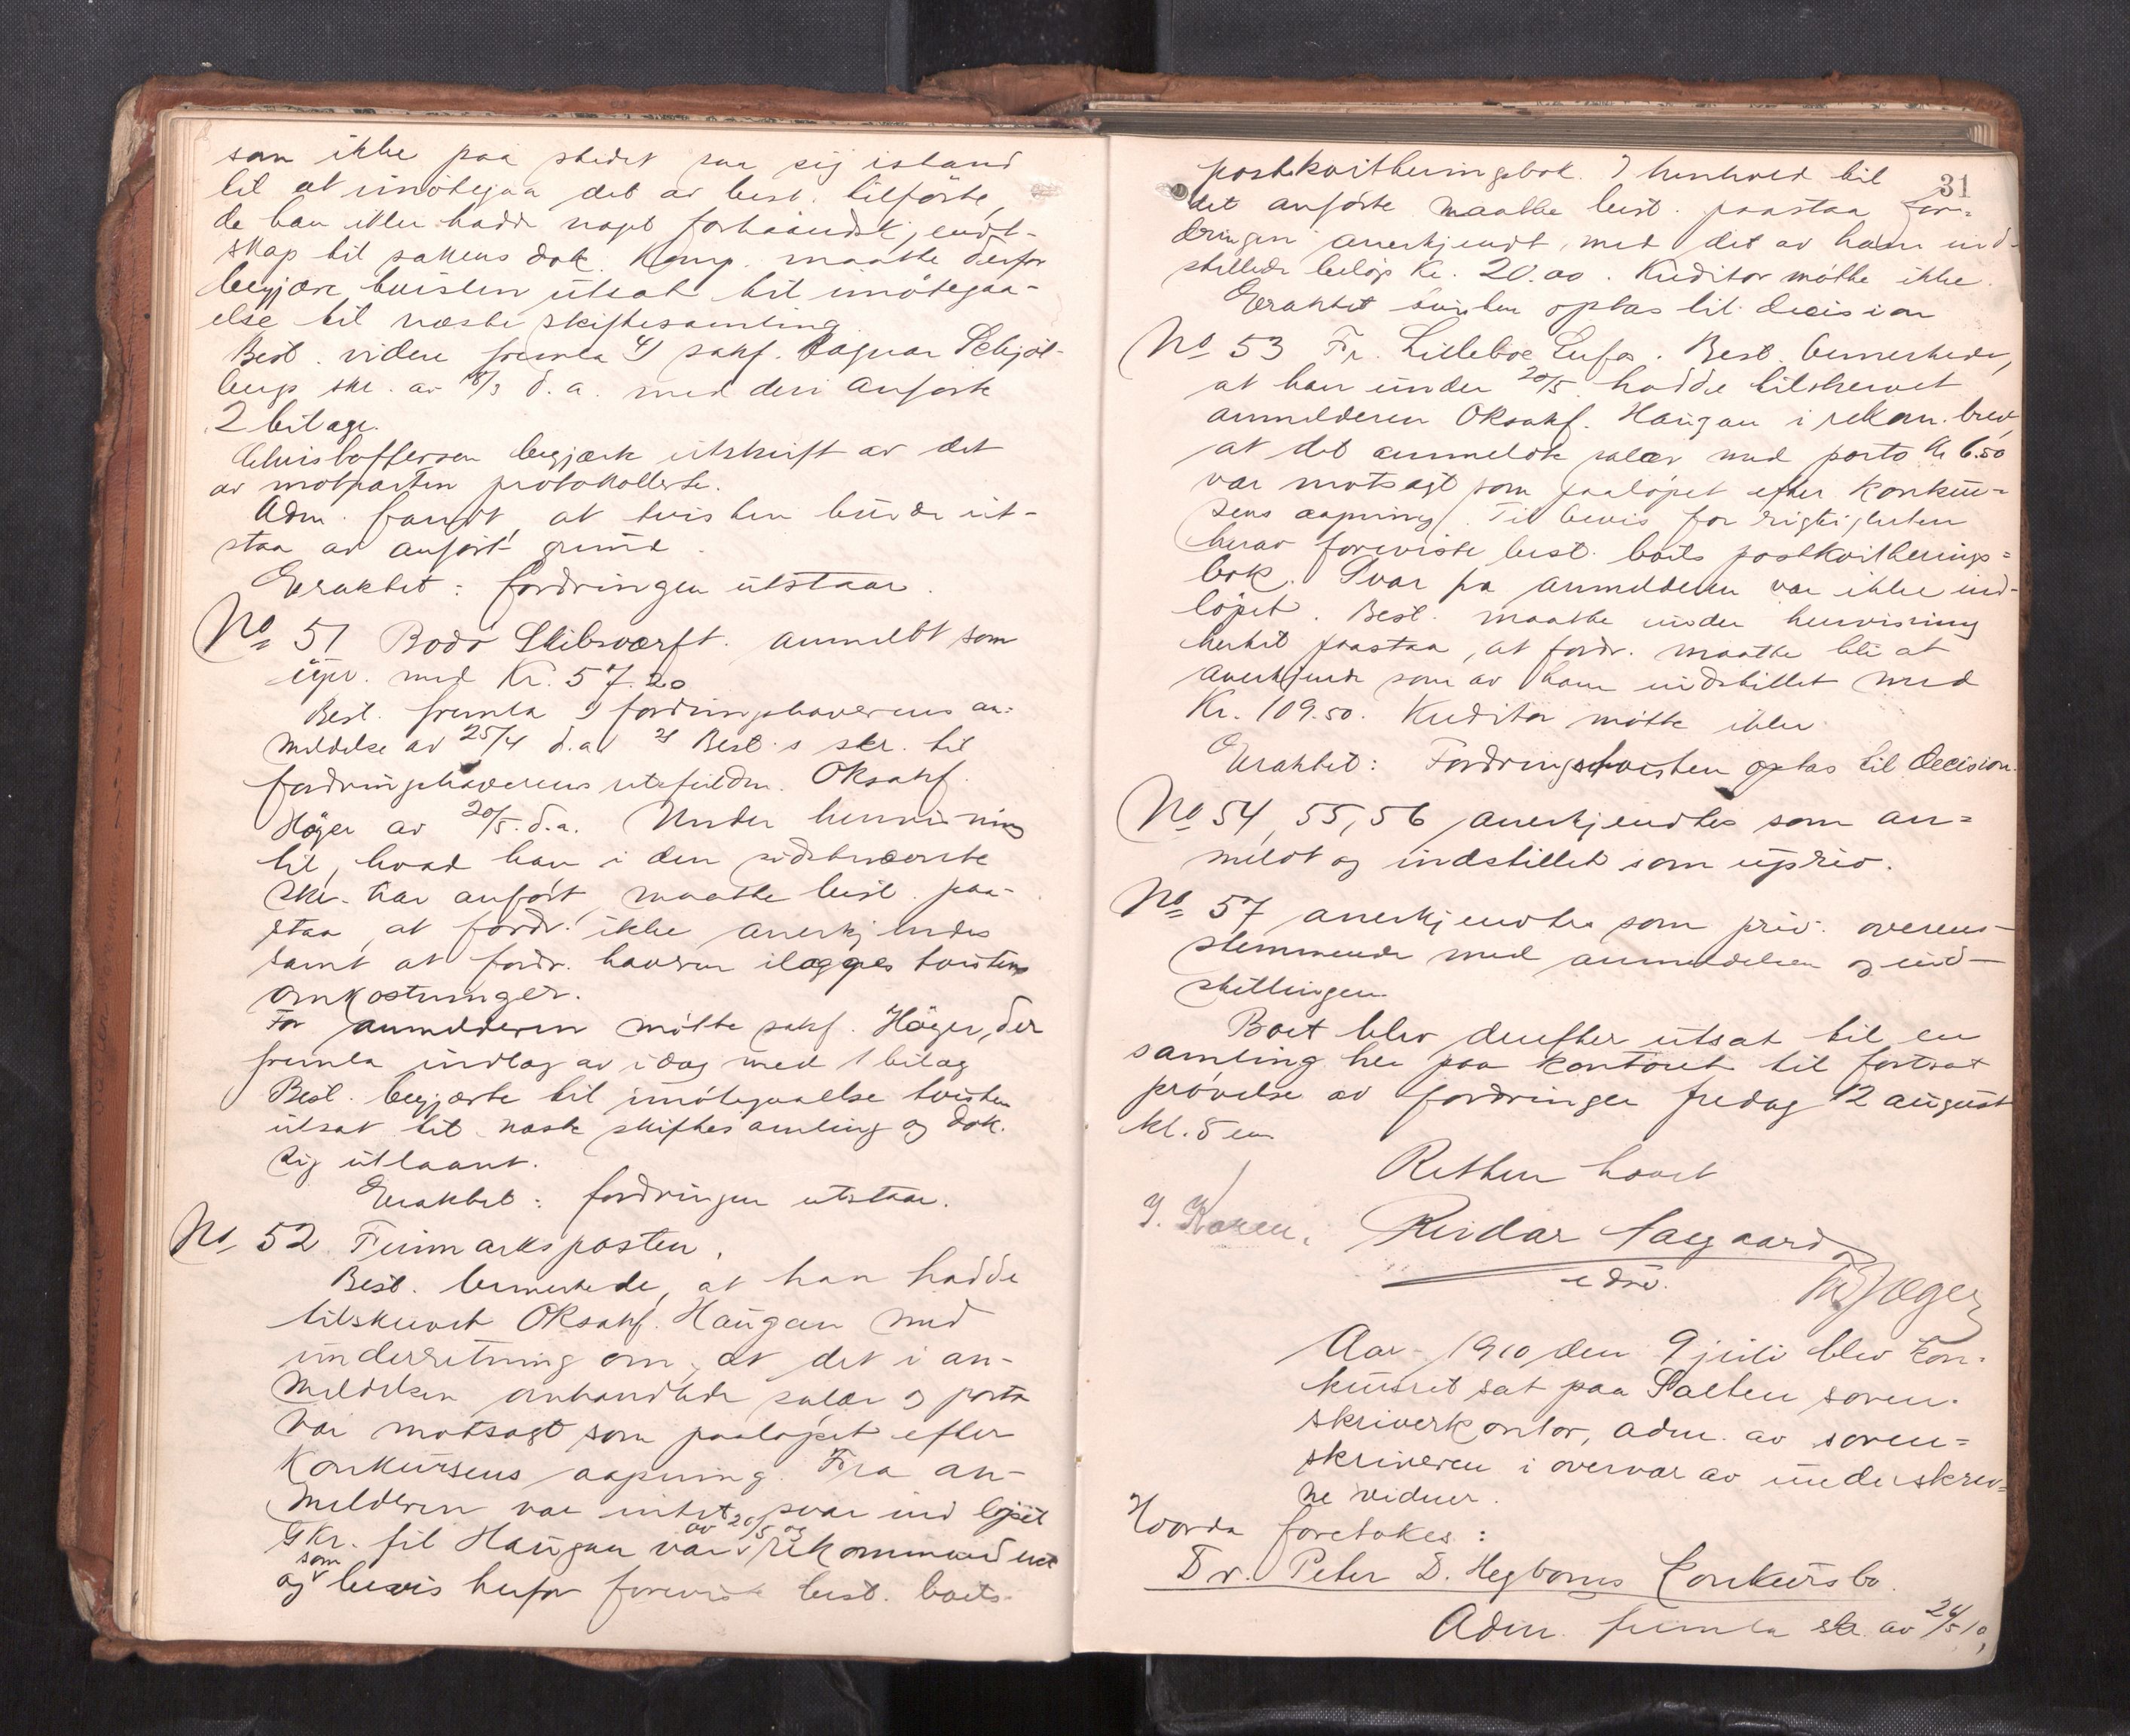 som ikke paa stedet saa sig istand
til at imøtegaa det av best. tilførte,
da han ikke hadde noget forhaandskjendt-
skap til sakens dok. Komp. maatte derfor
begjære tvisten utsat til imøtegaa-
else til næste skiftesamling.
Best. videre fremla 4) sakf. Ragnar Schjøl-
bergs skr. av 18/3 d.a. med deri anførte
2 bilage.
Christoffersen begjærte utskrift av det
av motparten protokollerte.
Adm. fandt, at tvisten burde ut-
staa av anført grund.
Eragtet: fordringen utstaar.
No 51 Bodø Skibsværft. anmeldt som
upr. med Kr. 57.20
Best. fremla 1) fordringshaverens an-
meldelse av 25/4 d.a. 2) Best.s skr. til
fordringshaverens utsfuldm. Oksakf.
Høyer av 20/5 d.a. Under henvisning
til, hvad han i den sidstnævnte
skr. har anført, maatte best. paa-
staa, at fordr. ikke anerkjendes
samt at fordr. haveren ilægges tvistens
omkostninger.
For anmelderen møtte sakf. Høyer, der
fremla indlæg av idag med 1 bilag
Best. begjærte til imøtegaaelse tvisten
utsat til næste skiftesamling og dok.
sig utlaant.
Eragtet: fordringen utstaar.
No 52. Finmarksposten.
Best. bemerkede, at han hadde
tilskrevet Oksakf. Haugan med
underretning om, at det i an-
meldelsen omhandlede salær og porto
var motsagt som paaløpet efter
Konkursens aapning. Fra an-
melderen var intet svar ind løpet
Skr. til Haugan av 20/5 var rekommanderet
og som bevis herfor foreviste best. boets
31
postkvitteringsbok. I henhold til
det anførte maatte best. paastaa for-
dringen anerkjendt, med det av ham ind-
stillede beløp Kr. 20.00. Kreditor møtte ikke.
Eragtet tvisten optas til decision
No 53 Fr. Lilleboe Eufa. Best. bemerkede,
at han under 20/5 hadde tilskrevet
anmelderen Oksakf. Haugan i rekom. brev,
at det anmeldte salær med porto Kr 6.50
var motsagt som paaløpet efter konkur-
sens aapning. Til bevis for rigtigheten
herav foreviste best. boets postkvitterings-
bok. Svar fra anmelderen var ikke ind-
løpet. Best. maatte under henvisning
hertil paastaa, at fordr. maatte bli at
anerkjende som av ham indstillet med
Kr. 109.50. Kreditor møtte ikke
Eragtet: Fordringstvisten optas til decision.
No 54, 55, 56 anerkjendtes som an-
meldt og indstillet som upriv.
No 57 anerkjendtes som priv. overens-
stemmende med anmeldelsen og ind-
stillingen
Boet blev derefter utsat til en
samling her paa kontoret til fortsat
prøvelse av fordringer fredag 12 august
kl. 5 em
Retten hævet
Reidar Aagaard
e dm.
Aar 1910 den 9 juli blev kon-
kursret sat paa Salten soren-
skriverkontor, adm. av soren-
skriveren i overvær av underskrev-
ne vidner.
Hvorda foretokes:
Dr. Peter D. Hegboms konkursbo.
Adm. fremla skr. av 24/5 10,